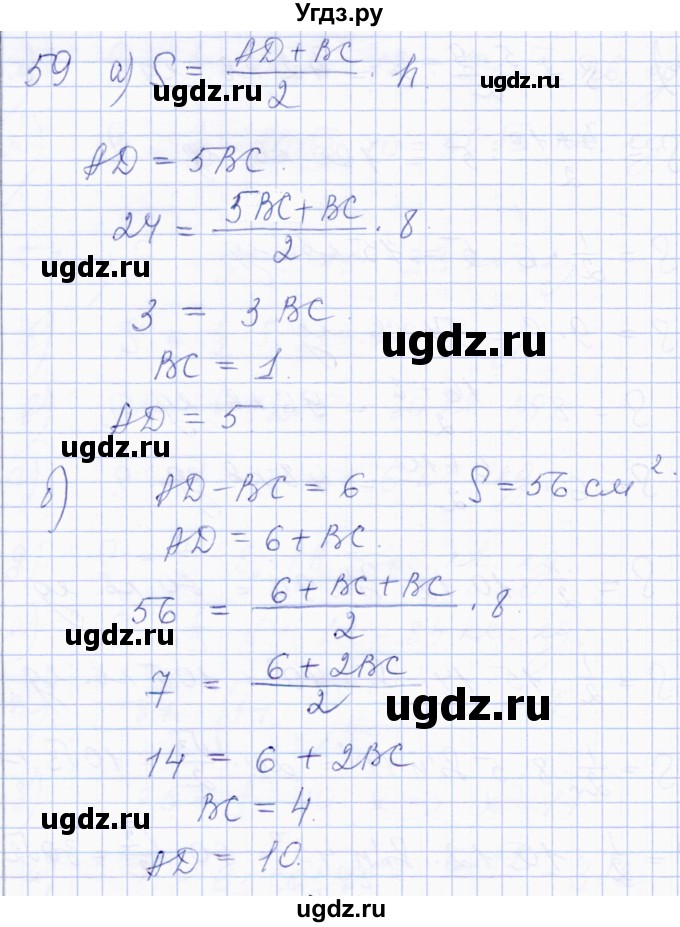 Угдз.ру
59 а) S = (AD + BC)/2 · h.
ugdz.ru ugdz.ru
AD = 5BC.
24 = (5BC + BC)/2 · 8.
ugdz.ru
3 = 3 BC.
ugdz.ru
BC = 1.
AD = 5
ugdz.ru
б) AD - BC = 6 S = 56 см².
AD = 6 + BC.
56 = (6 + BC + BC)/2 · 8.
ugdz.ru
7 = (6 + 2BC)/2
ugdz.ru
14 = 6 + 2BC
BC = 4.
ugdz.ru
AD = 10.
ugdz.ru